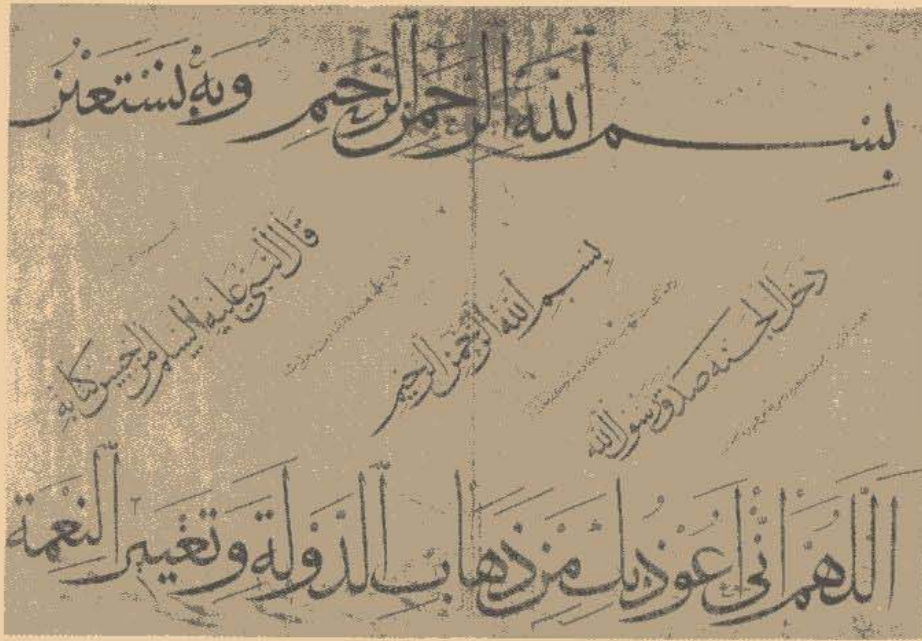 بسم الله الرحمن الرحيم وبه نستعين
قال النبي عليه السلم من حسن كتابة
بسم الله الرحمن الرحيم
دخل الجنة صدق رسول الله
اللهم اني اعوذ بك من ذهاب الدولة وتغيير النعمة